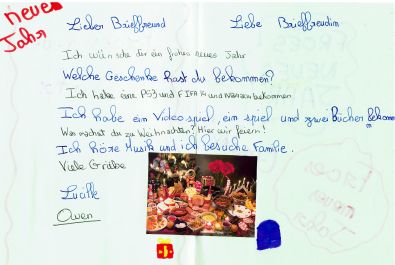 neues
Jahr
Lieber Brieffreund
Liebe Brieffreudin
Ich wünsche dir ein frohes neues Jahr
Welche Geschenke hast du bekommen?
Ich habe eine PS3 und FIFA 14 und bekommen
Ich habe ein Videospiel, ein spiel und zwei Bücher bekommen
Was machst du zu Weihnachten? Hier wir feiern!
Ich höre Musik und ich besuche Familie.
Viele Grüße
Lucille
Owen